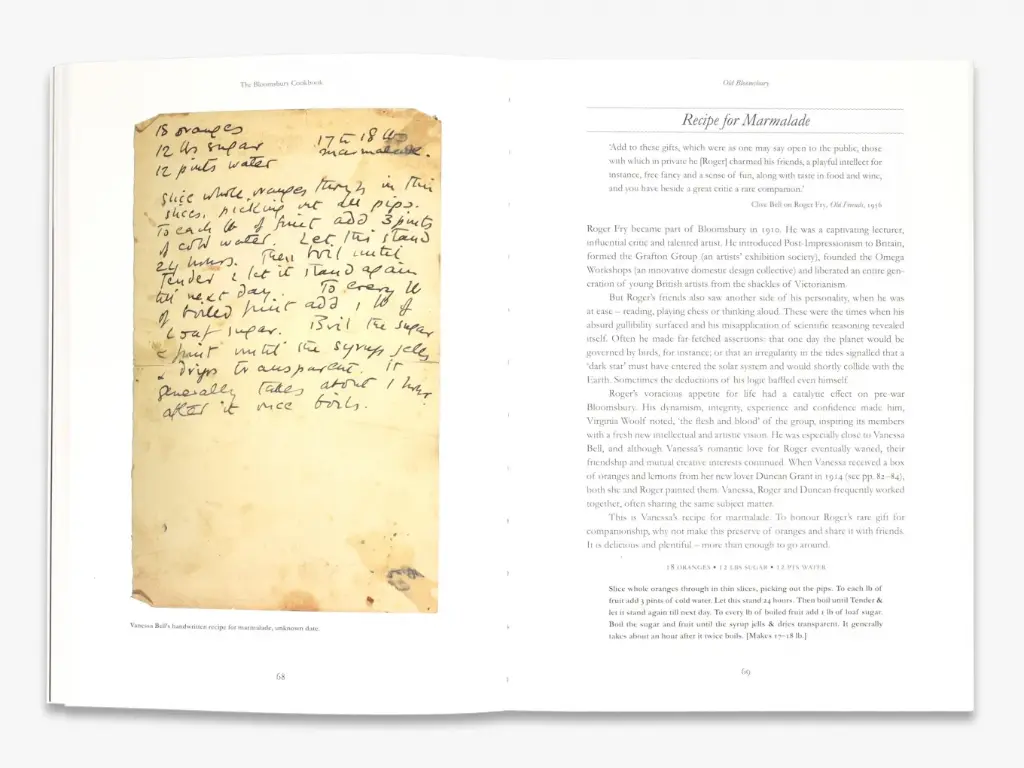 The Bloomsbury Cookbook
18 oranges
12 lbs sugar
12 pints water
17 to 18 lbs
marmalade.
Slice whole oranges through in thin
slices, picking out all pips.
To each lb of fruit add 3 pints
of cold water. Let this stand
24 hours. Then boil until
Tender & let it stand again
till next day. To every lb
of boiled fruit add 1 lb of
Loaf sugar. Boil the sugar
& fruit until the syrup jells
& drips transparent. It
generally takes about 1 hour
after it once boils.
Vanessa Bell's handwritten recipe for marmalade, unknown date.
68
Old Bloomsbury
Recipe for Marmalade
'Add to these gifts, which were as one may say open to the public, those
with which in private he [Roger] charmed his friends, a playful intellect for
instance, free fancy and a sense of fun, along with taste in food and wine,
and you have beside a great critic a rare companion.'
Clive Bell on Roger Fry, Old Friends, 1956
Roger Fry became part of Bloomsbury in 1910. He was a captivating lecturer,
influential critic and talented artist. He introduced Post-Impressionism to Britain,
formed the Grafton Group (an artists' exhibition society), founded the Omega
Workshops (an innovative domestic design collective) and liberated an entire gen-
eration of young British artists from the shackles of Victorianism.
But Roger's friends also saw another side of his personality, when he was
at ease – reading, playing chess or thinking aloud. These were the times when his
absurd gullibility surfaced and his misapplication of scientific reasoning revealed
itself. Often he made far-fetched assertions: that one day the planet would be
governed by birds, for instance; or that an irregularity in the tides signalled that a
'dark star' must have entered the solar system and would shortly collide with the
Earth. Sometimes the deductions of his logic baffled even himself.
Roger's voracious appetite for life had a catalytic effect on pre-war
Bloomsbury. His dynamism, integrity, experience and confidence made him,
Virginia Woolf noted, 'the flesh and blood' of the group, inspiring its members
with a fresh new intellectual and artistic vision. He was especially close to Vanessa
Bell, and although Vanessa's romantic love for Roger eventually waned, their
friendship and mutual creative interests continued. When Vanessa received a box
of oranges and lemons from her new lover Duncan Grant in 1914 (see pp. 82–84),
both she and Roger painted them. Vanessa, Roger and Duncan frequently worked
together, often sharing the same subject matter.
This is Vanessa's recipe for marmalade. To honour Roger's rare gift for
companionship, why not make this preserve of oranges and share it with friends.
It is delicious and plentiful – more than enough to go around.
18 ORANGES • 12 LBS SUGAR • 12 PTS WATER
Slice whole oranges through in thin slices, picking out the pips. To each lb of
fruit add 3 pints of cold water. Let this stand 24 hours. Then boil until Tender &
let it stand again till next day. To every lb of boiled fruit add 1 lb of loaf sugar.
Boil the sugar and fruit until the syrup jells & dries transparent. It generally
takes about an hour after it twice boils. [Makes 17–18 lb.]
69